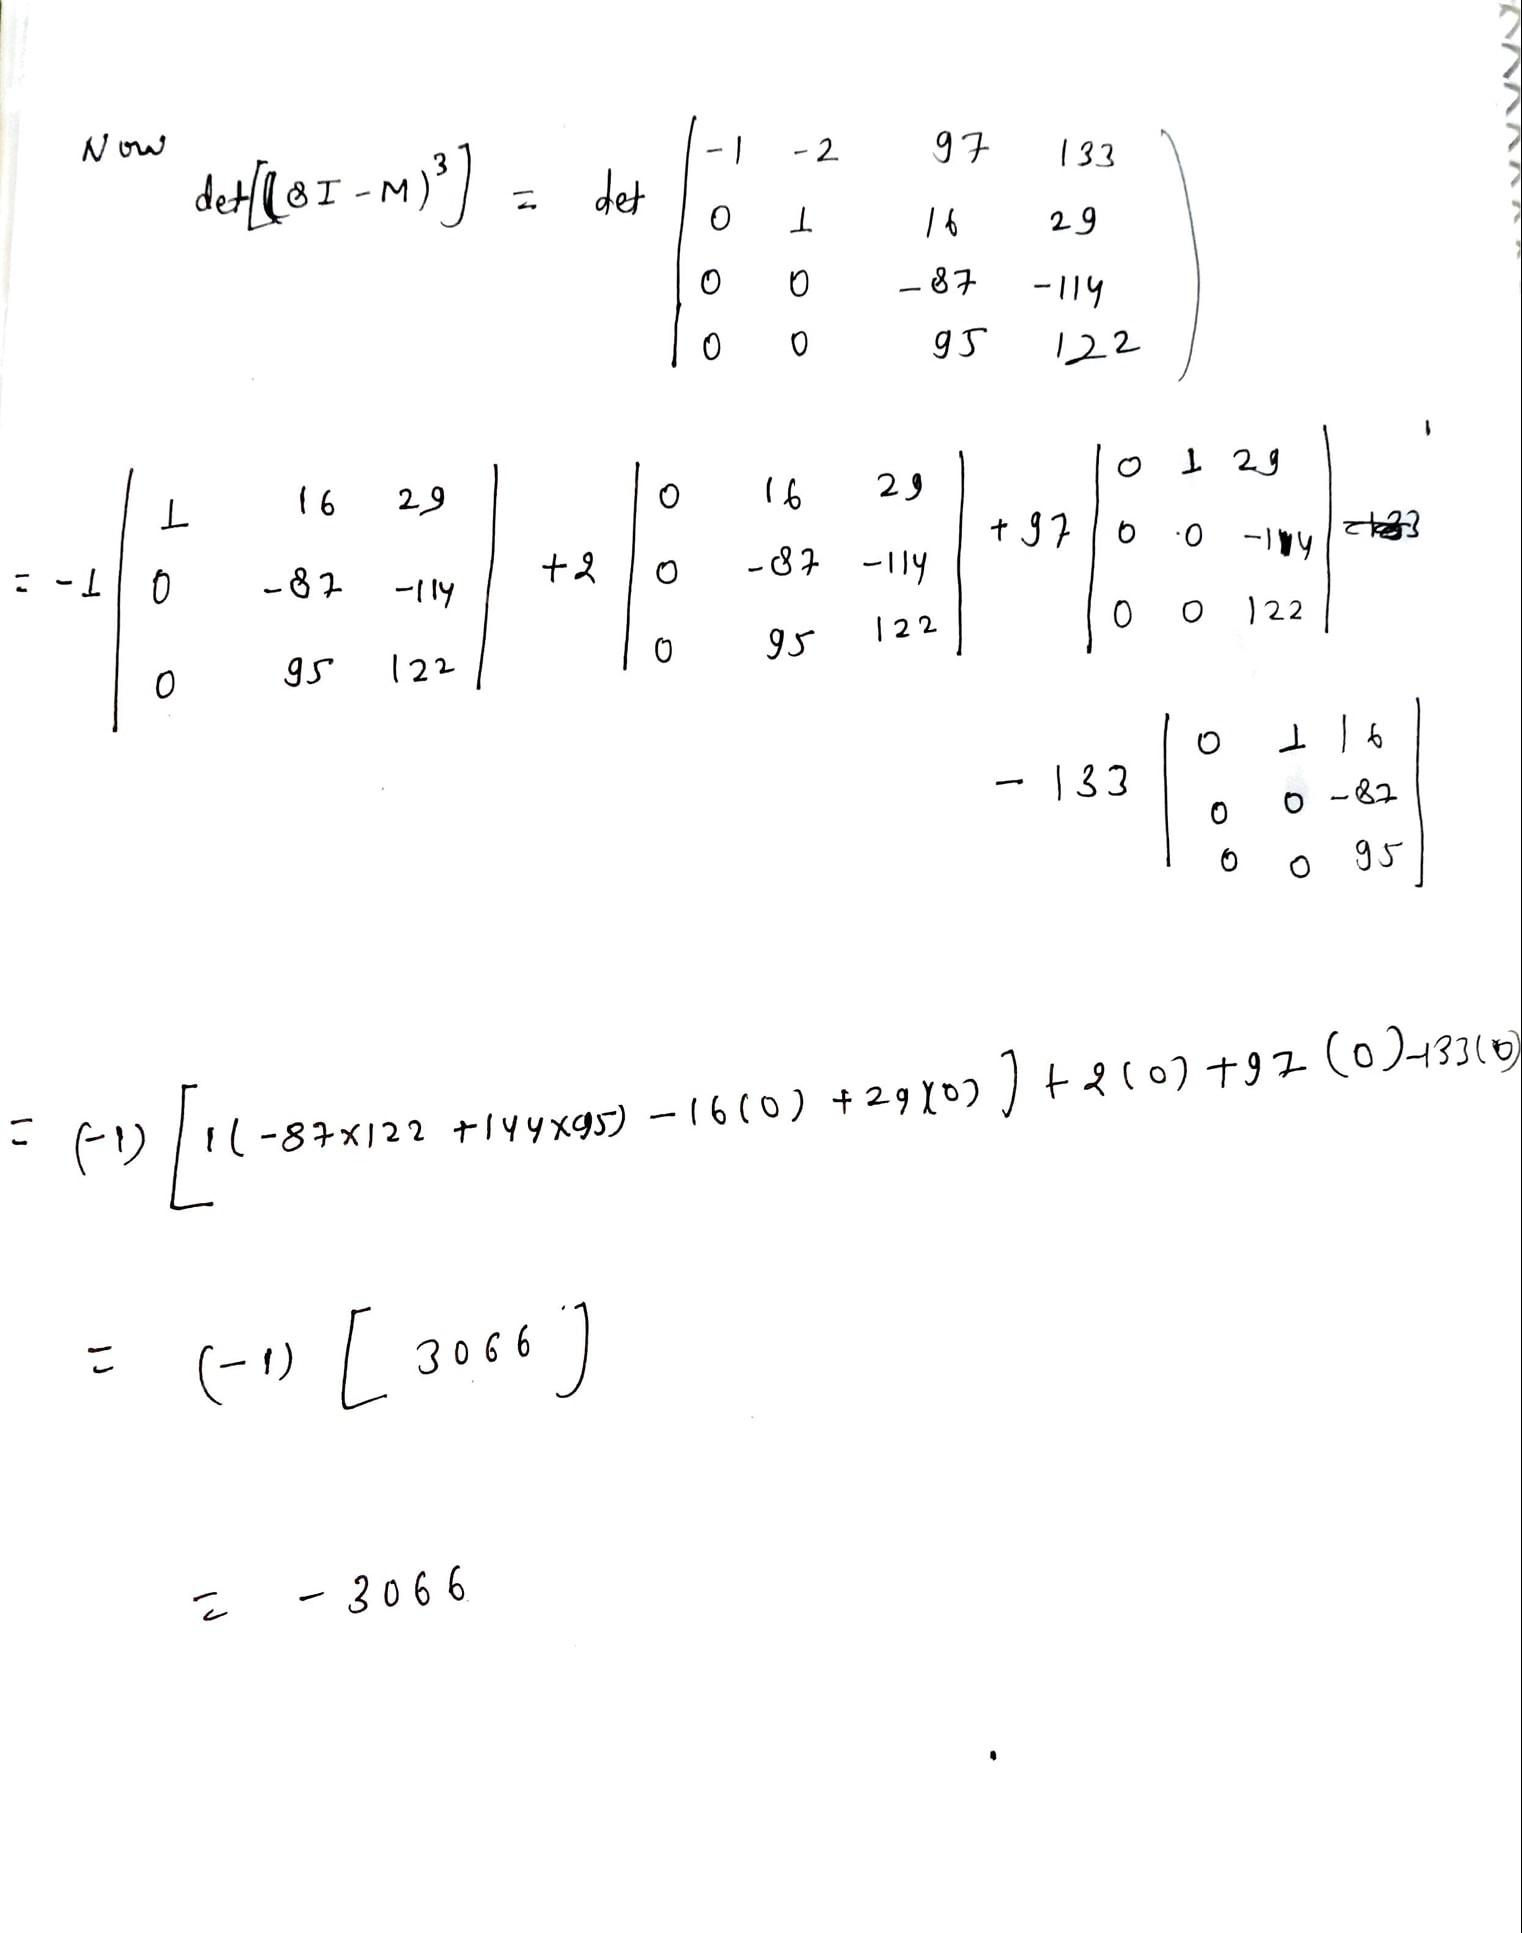 Now
det[(8I - M)³] = det | -1 -2 97 133 )
0 1 16 29
0 0 -87 -114
0 0 95 122
= -1 | 1 16 29 | +2 | 0 16 29 | +97 | 0 1 29 |
0 -87 -114 0 -87 -114 0 0 -114
0 95 122 0 95 122 0 0 122
- 133 | 0 1 16 |
0 0 -87
0 0 95
= (-1) [ 1(-87×122 +144×95) -16(0) +29×(0) ] + 2(0) +97(0) -133(0)
= (-1) [ 3066 ]
= - 3066